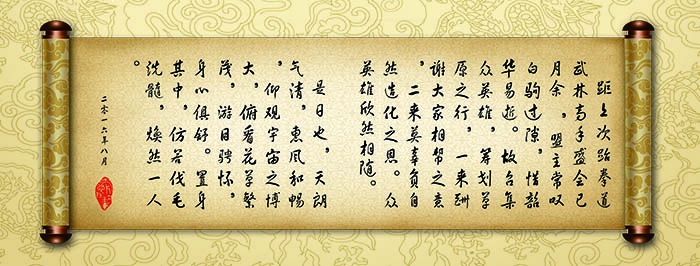 距上次跆拳道
武林高手盛会已
月余，盟主常叹
白驹过隙，惜韶
华易逝。故召集
众英雄，筹划草
原之行，一来酬
谢大家相帮之意
，二来莫辜负自
然造化之恩。众
英雄欣然相随。
是日也，天朗
气清，惠风和畅
，仰观宇宙之博
大，俯看花草繁
茂，游目骋怀，
身心俱舒。置身
其中，仿若伐毛
洗髓，焕然一人
。
二零一六年八月